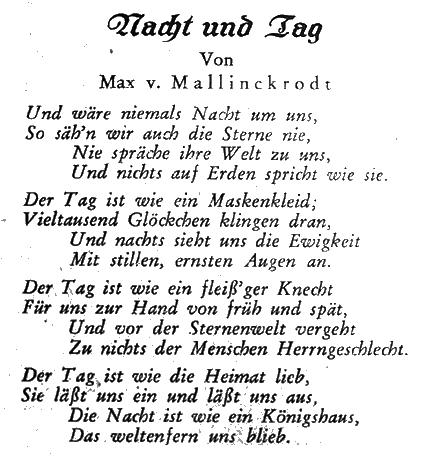 Nacht und Tag
Von
Max v. Mallinckrodt
Und wäre niemals Nacht um uns,
So säh'n wir auch die Sterne nie,
Nie spräche ihre Welt zu uns,
Und nichts auf Erden spricht wie sie.
Der Tag ist wie ein Maskenkleid;
Vieltausend Glöckchen klingen dran,
Und nachts sieht uns die Ewigkeit
Mit stillen, ernsten Augen an.
Der Tag ist wie ein fleiß'ger Knecht
Für uns zur Hand von früh und spät,
Und vor der Sternenwelt vergeht
Zu nichts der Menschen Herrngeschlecht.
Der Tag ist wie die Heimat lieb,
Sie läßt uns ein und läßt uns aus,
Die Nacht ist wie ein Königshaus,
Das weltenfern uns blieb.